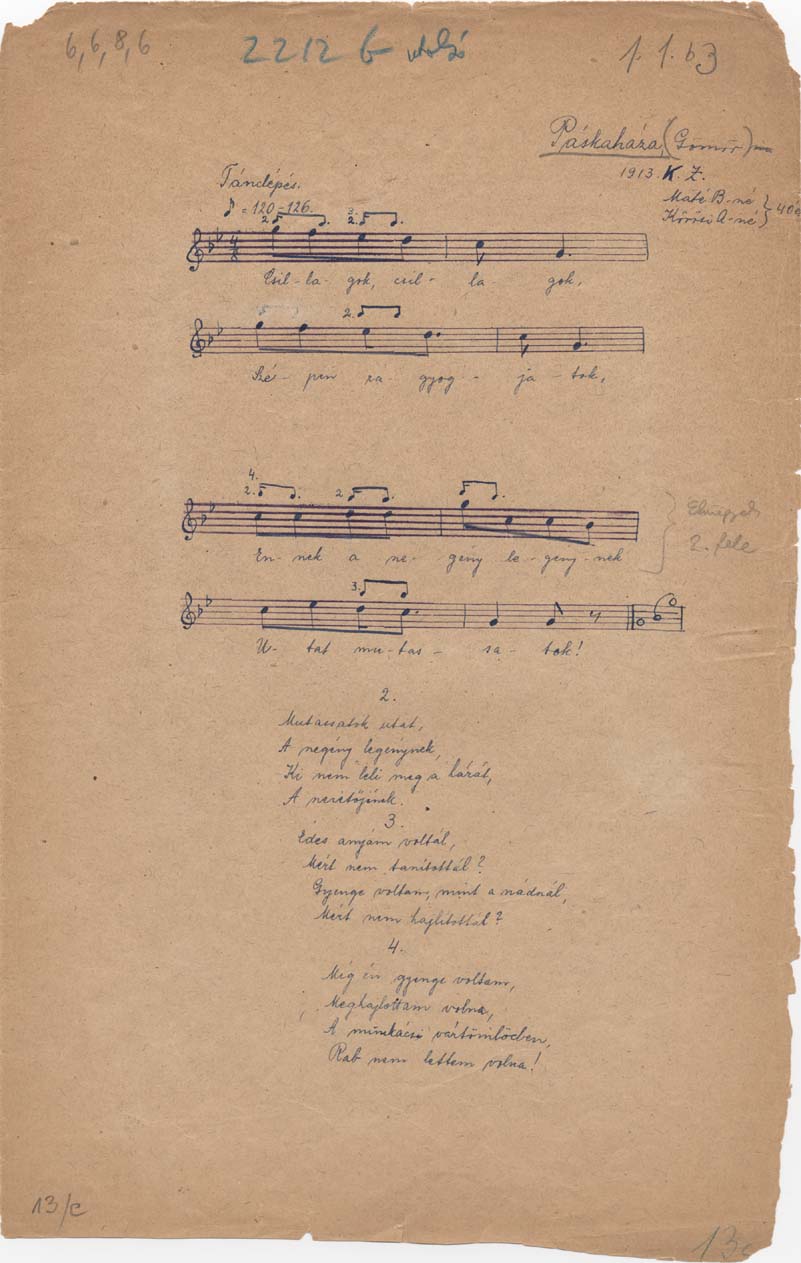 6, 6, 8, 6
2212 G utolsó
1. 1. 63
Páskaháza, (Gömör)
1913. K. Z.
Máté B-né
Kőrösi A-né } 40é
Tánclépés.
♪ = 120-126.
2. 3. 2.
4/8
Csil-la-gok, csil-la-gok,
2.
Szé-pen ra-gyog-ja-tok,
4.
2. 2.
En-nek a ne-gény le-gény-nek
2. fele
3.
U-tat mu-tas-sa-tok!
2.
Mutassatok utat,
A negény legénynek,
Ki nem leli meg a házát,
A szeretőjének.
3.
Édes anyám voltál,
Mért nem tanítottál?
Gyenge voltam, mint a nádszál,
Mért nem hajlítottál?
4.
Míg én gyenge voltam,
Meghajlottam volna,
A munkácsi vártömlöcben,
Rab nem lettem volna!
13/c
13c